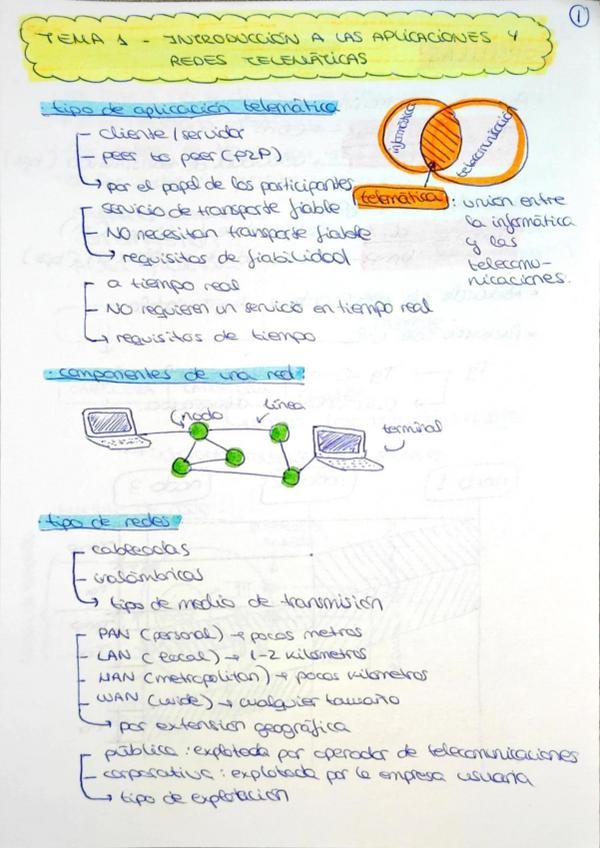 1
TEMA 1 - INTRODUCCIÓN A LAS APLICACIONES Y
REDES TELEMÁTICAS
· tipo de aplicación telemática
cliente/servidor
peer to peer (P2P)
por el papel de los participantes
servicio de transporte fiable
NO necesitan transporte fiable
requisitos de fiabilidad
a tiempo real
NO requieren un servicio en tiempo real
requisitos de tiempo
informática
telecomunicación
telemática: unión entre
la informática
y las
telecomu-
nicaciones.
· componentes de una red:
nodo
línea
terminal
· tipo de redes:
cableadas
inalámbricas
tipo de medio de transmisión
PAN (personal) → pocos metros
LAN (local) → 1-2 kilometros
MAN (metropolitan) → pocos kilometros
WAN (wide) → cualquier tamaño
por extension geográfica
pública: explotada por operador de telecomunicaciones
corporativa: explotada por la empresa usuaria
tipo de explotación